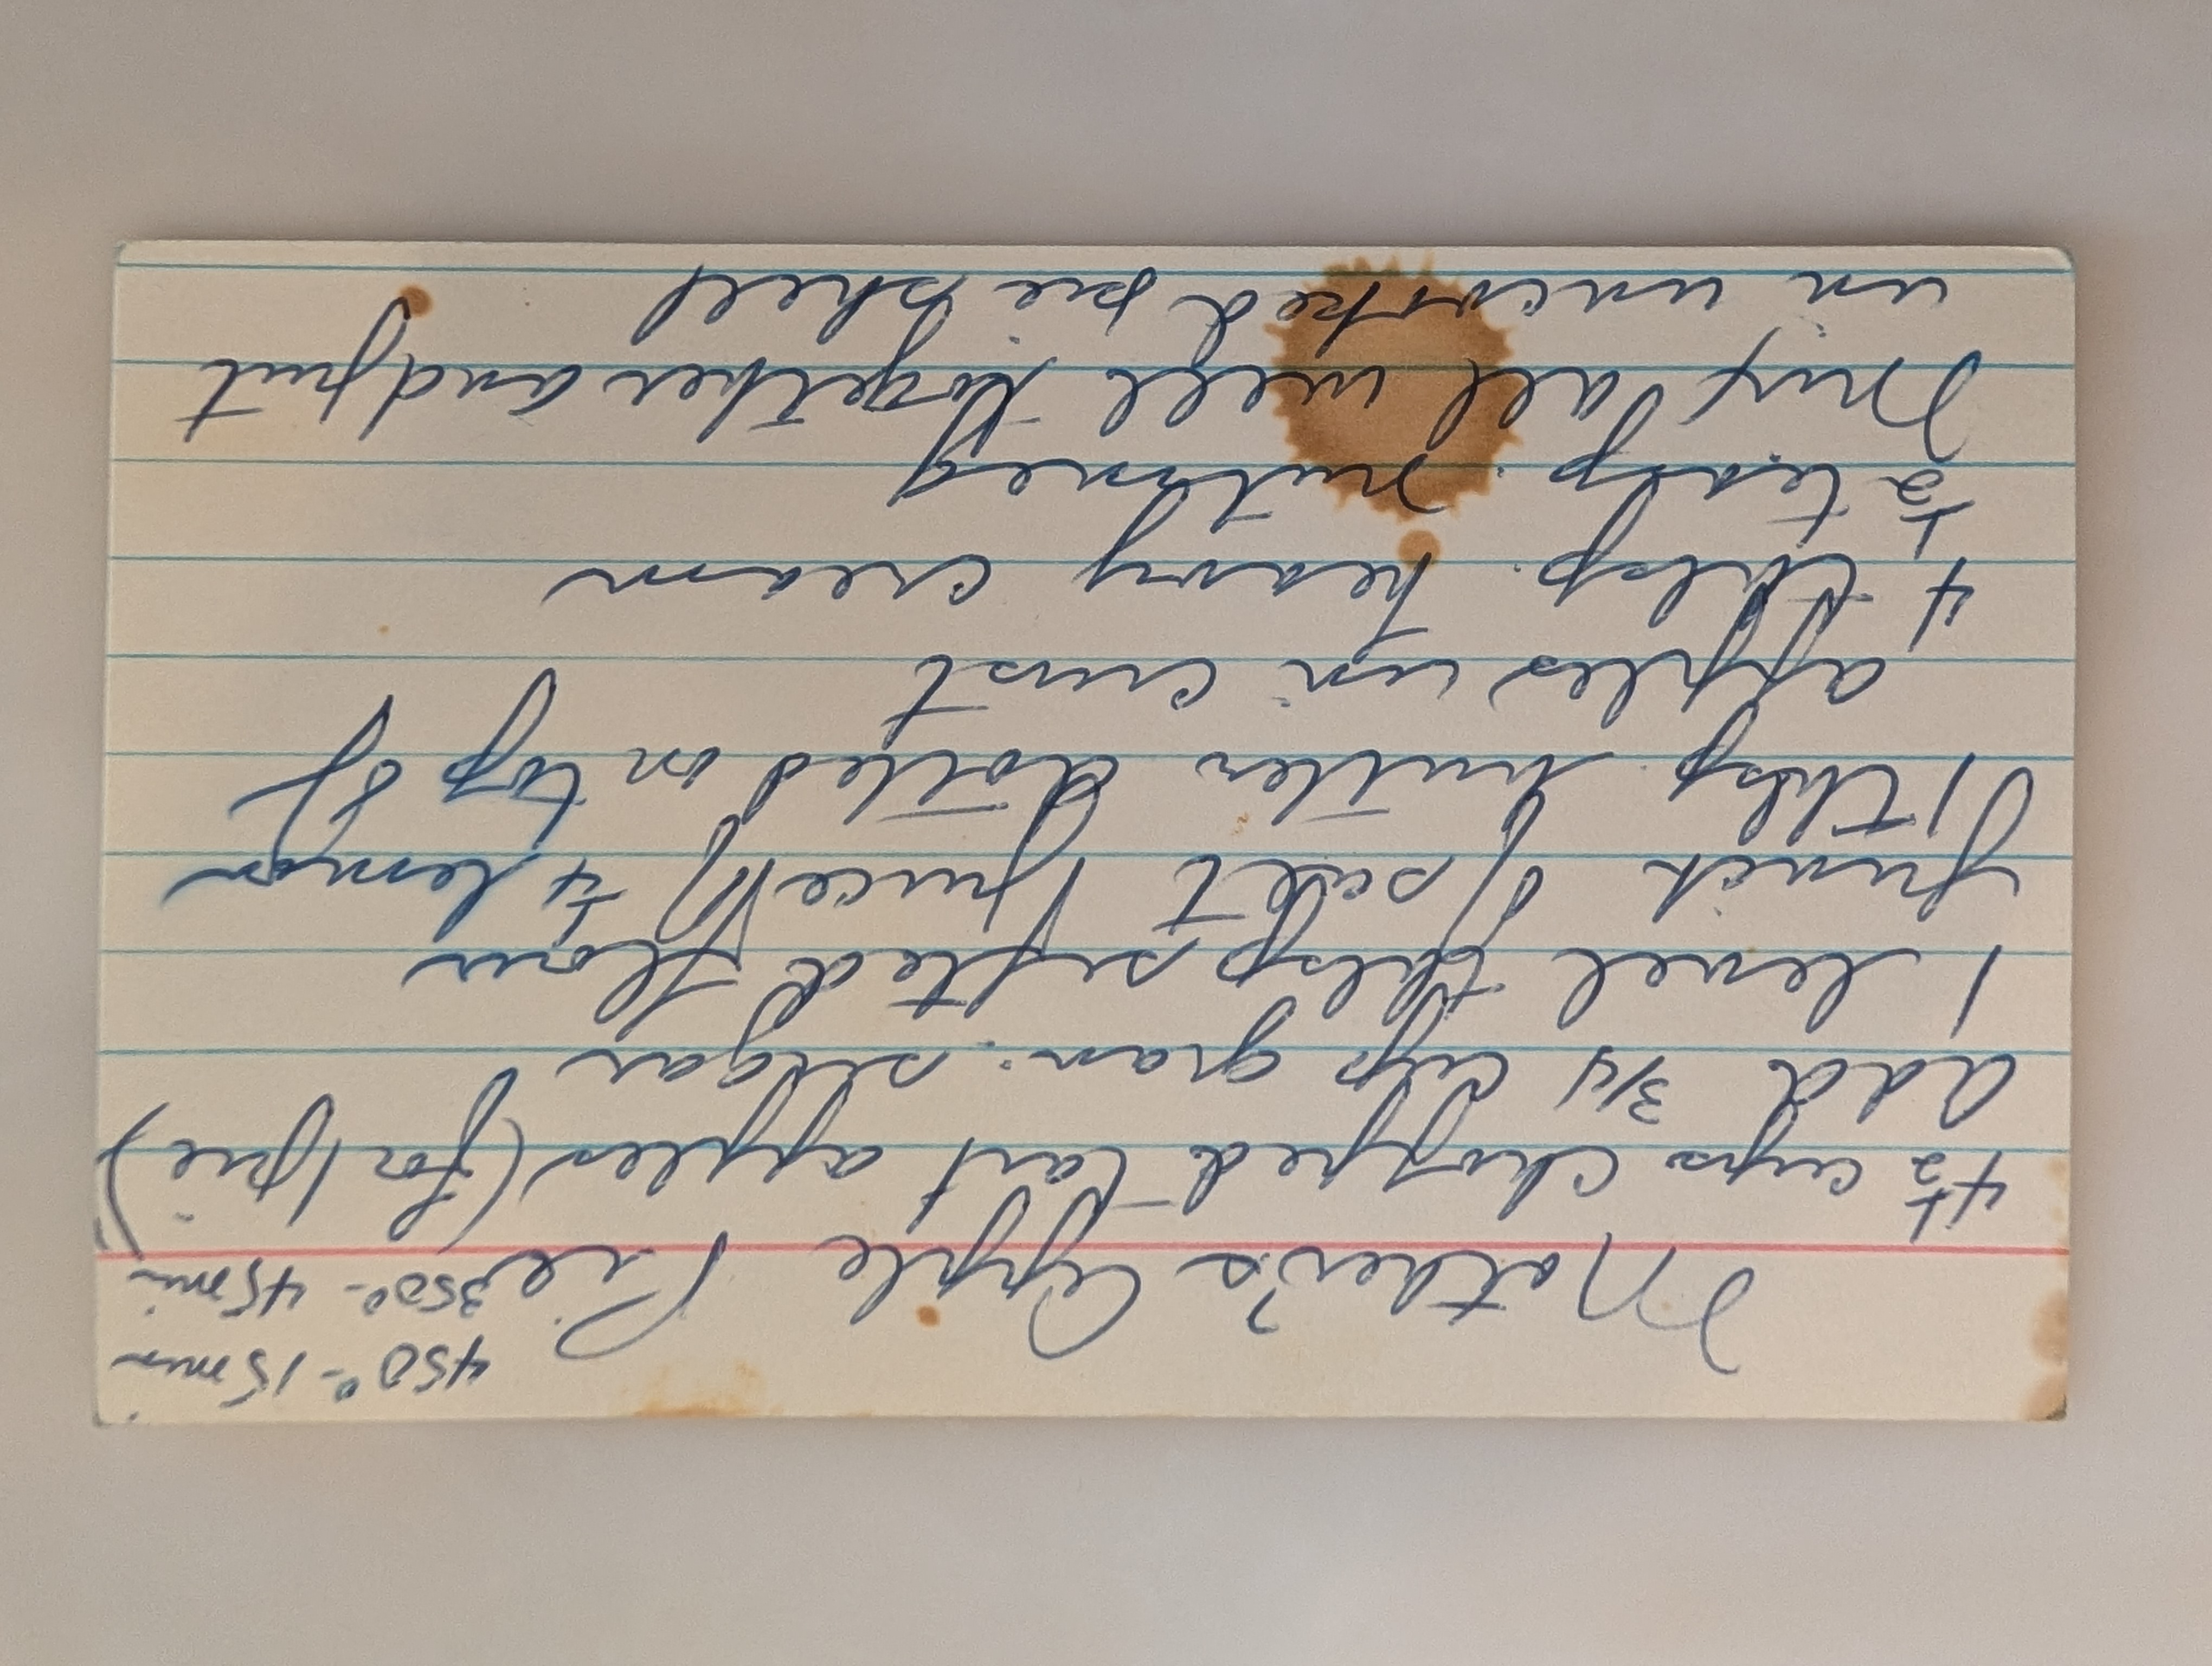 450°- 15 min
Mother's Apple Pie 350°- 45 min
4½ cups chopped tart apples (for 1 pie)
add 3/4 cups gran. sugar
1 level tblsp sifted flour
pinch of salt juice of ¼ lemon
1 tblsp. butter dotted on top of
apples in crust
4 tblsp. heavy cream
½ teasp. nutmeg
Mix all well together and put
in uncooked pie shell